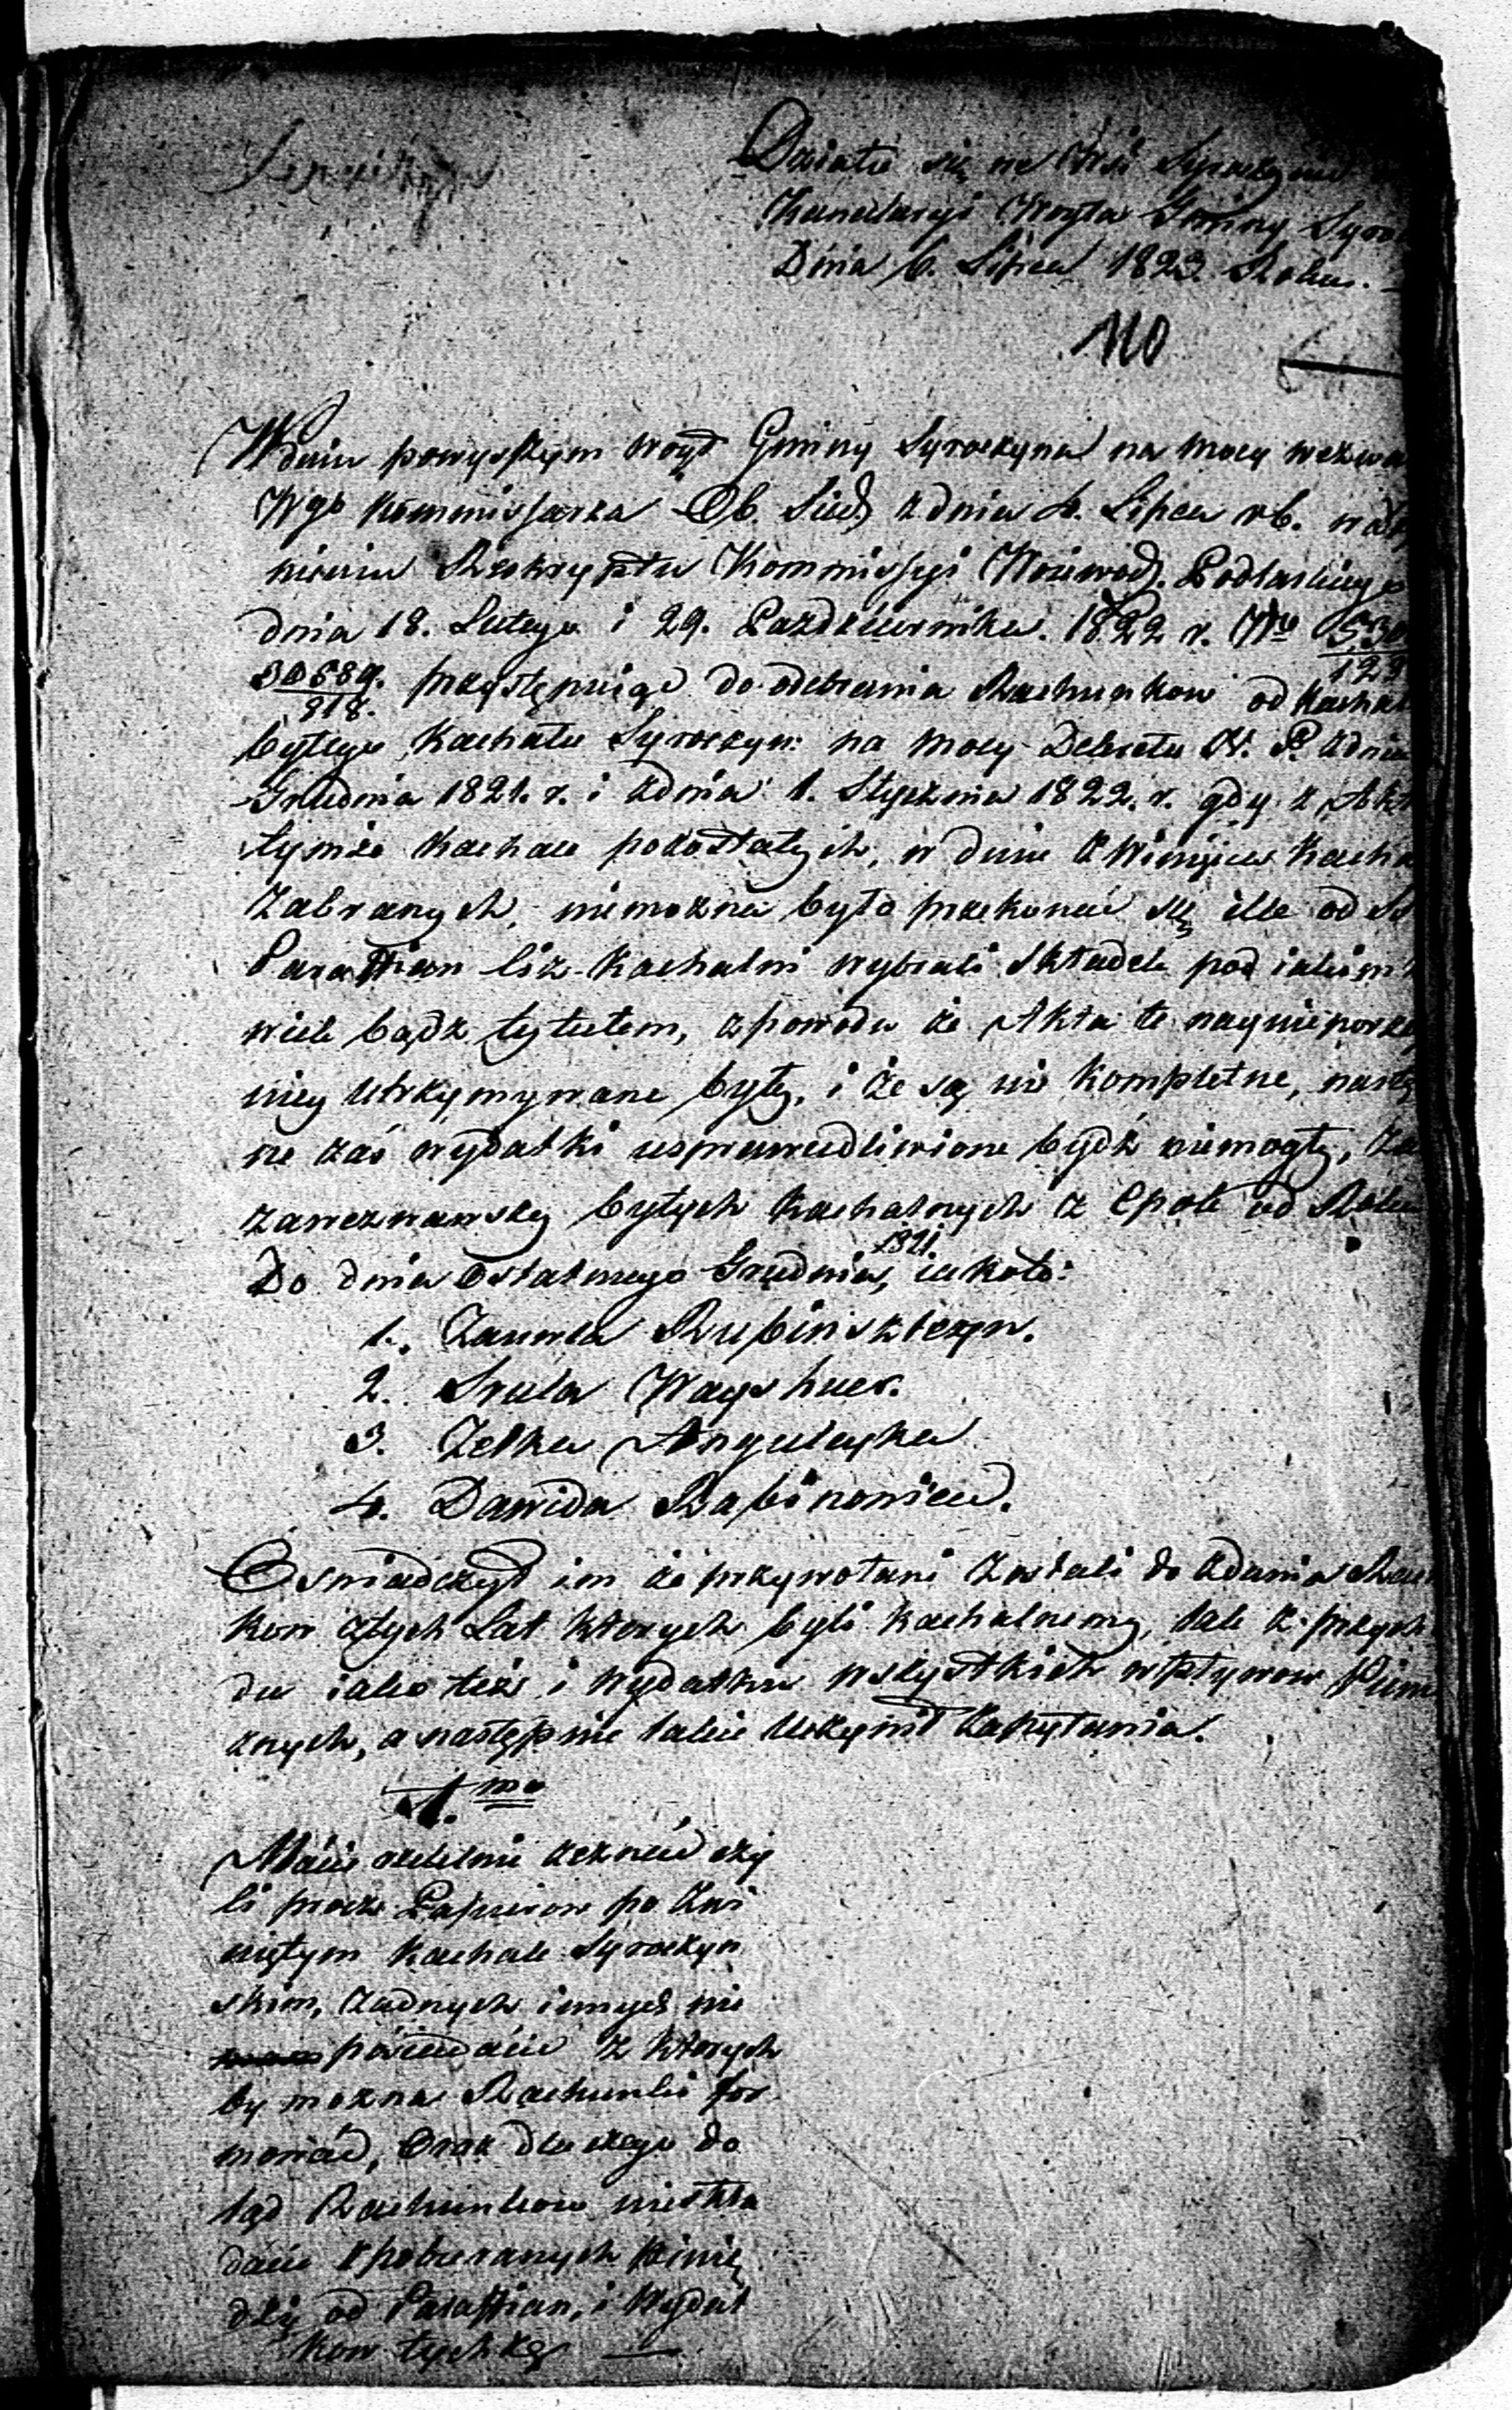 Działo się na Wsi Syroczynie
Kancelaryi Woyta Gminy Syro
Dnia 6. Lipca 1823 Roku. —
110
W dniu powyższym woyt Gminy Syroczyna na mocy wezwa
Wgo Kommissarza Ob. Sied z dnia 4. Lipca rb. w do
nieniu Reskryptu Kommissyi Woiewod. Podlaskiego
dnia 18. Lutego i 29. Pazdziernika. 1822 r. Nro
818. przystępuiąc do odebrania Rachunkow od Kachal
byłego Kachału Syroczyn: na mocy Dekretu K. P. z dnia
Grudnia 1821. r. i z dnia 1. Stycznia 1822. r. gdy z Akt
tymże Kachale pozostałych, w dniu zwinięcia Kacha
zabranych, niemożna było przekonać się ille od S
Paraffian liż Kachalni wybrali Składek pod iakim
wiek bądz tytułem, z powodu że Akta te naynieporzą
niey utrzymywane były, i że są nie kompletne, nastę
ne zaś wydatki usprawiedliwione bydź niemogły, Za
zawezwawszy byłych Kachalnych z Epok od Roku
1821.
Do dnia Ostatniego Grudnia, iakoto:
1. Zawela Rubinszteyn.
2. Srula Wayshuer.
3. Zelka Angulayka
4. Dawida Rabinowicza.
Oswiadczył im że przywołani zostali do zdania Rach
kow z tych Lat ktorych byli Kachalnemy, tak z przycho
du iako też i wydatku wszystkich wpływow Pienię
znych, a następnie takie uczynił zapytania.
1.mo
Macie rzetelnie zeznać czy
li procz Papierow po zwi
niętym Kachale Syroczyn
skim, żadnych innych nie
posiadacie z ktorych
by można Rachunki for
mować, Oraz dla czego do
tąd Rachunkow nieskła
dacie z pobieranych pienię
dzy od Paraffian, i wydat
kow tychże —